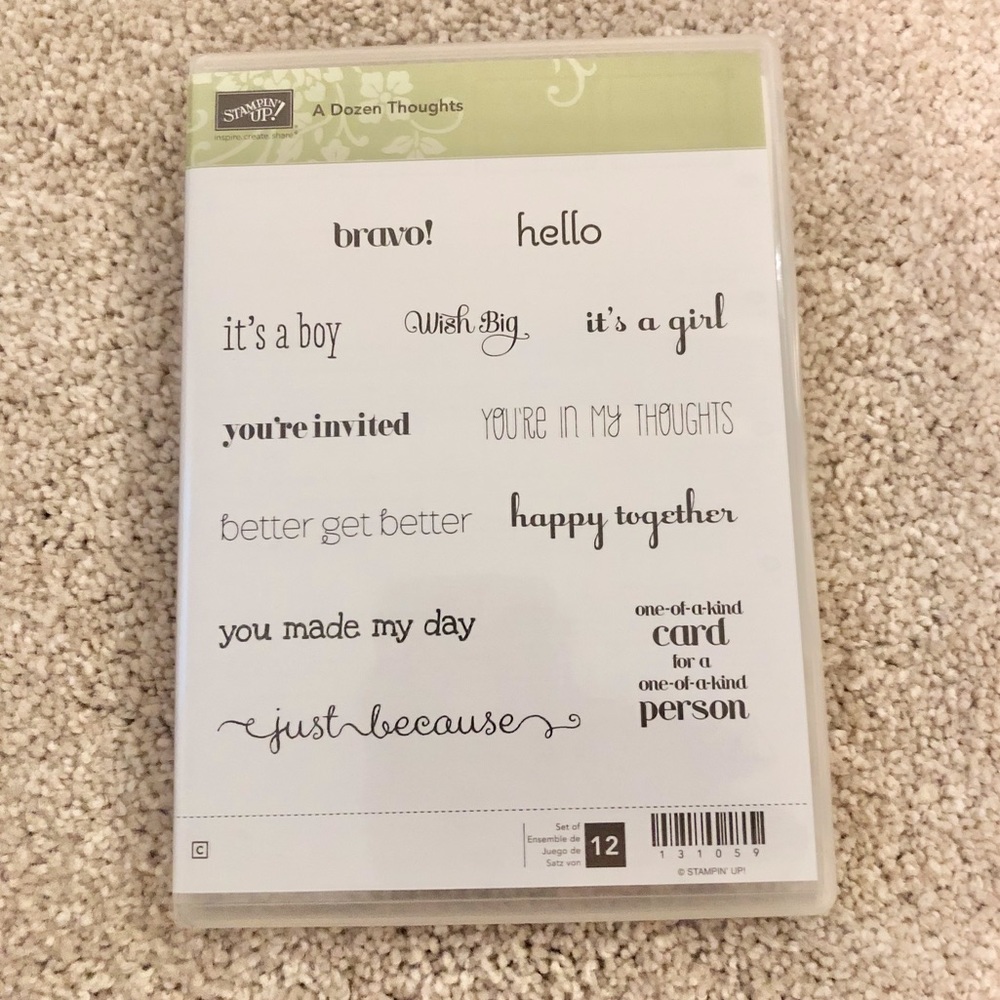 STAMPIN' UP!
inspire.create.share
A Dozen Thoughts
bravo! hello
it's a boy Wish Big it's a girl
you're invited YOU'RE IN MY THOUGHTS
better get better happy together
you made my day
one-of-a-kind
card
for a
one-of-a-kind
person
just because
C
Set of
Ensemble de
Juego de
Satz von
12
131059
© STAMPIN' UP!